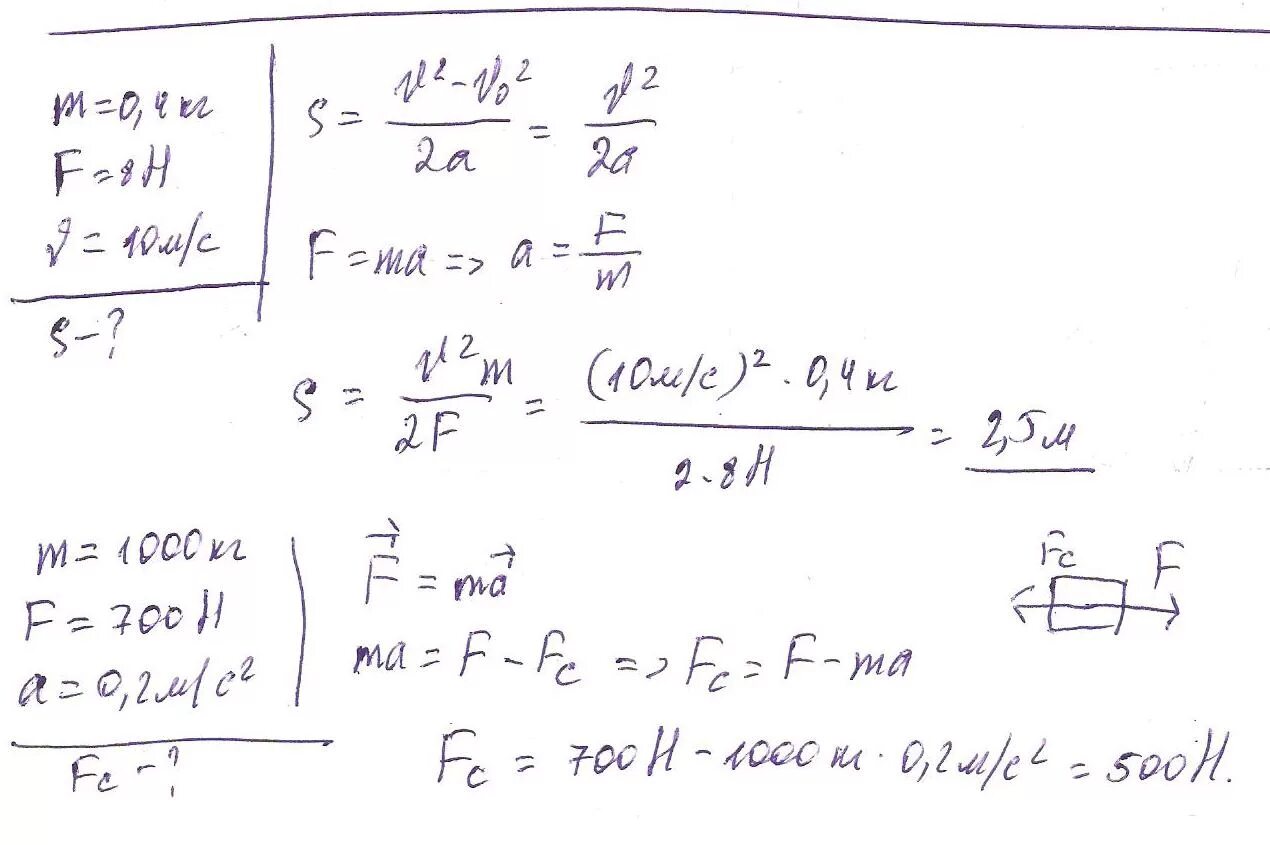 m = 0,4 кг
F = 8 Н
v = 10 м/с
S - ?
S = (v² - v₀²)/2a = v²/2a
F = ma => a = F/m
S = v²m/2F = ((10 м/с)² · 0,4 кг)/(2 · 8 Н) = 2,5 м
m = 1000 кг
F = 700 Н
a = 0,2 м/с²
Fc - ?
F⃗ = ma⃗
ma = F - Fc => Fc = F - ma
Fc = 700 Н - 1000 кг · 0,2 м/с² = 500 Н.
Fc F